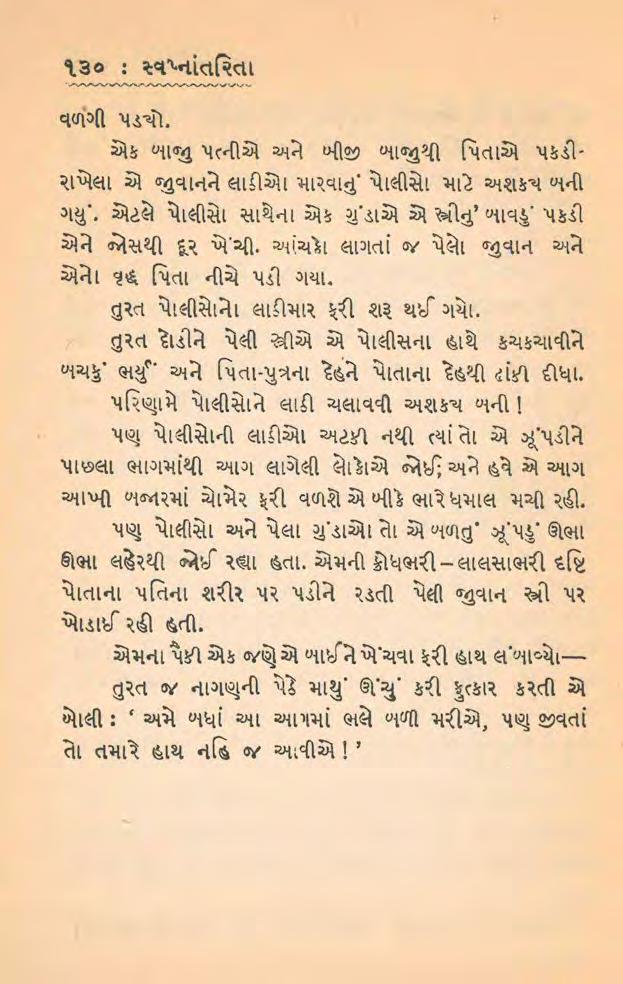 ૧૩૦ : સ્વપ્નાંતરિતા
વળગી પડયો.
એક બાજુ પત્નીએ અને બીજી બાજુથી પિતાએ પકડી-
રાખેલા એ જુવાનને લાઠીઓ મારવાનું પોલીસો માટે અશકય બની
ગયું. એટલે પોલીસો સાથેના એક ગુંડાએ એ સ્ત્રીનું બાવડું પકડી
એને જોસથી દૂર ખેંચી. આંચકો લાગતાં જ પેલો જુવાન અને
એનો વૃદ્ધ પિતા નીચે પડી ગયા.
તુરત પોલીસોનો લાઠીમાર ફરી શરૂ થઈ ગયો.
તુરત દોડીને પેલી સ્ત્રીએ એ પોલીસના હાથે કચકચાવીને
બચકું ભર્યું અને પિતા-પુત્રના દેહને પોતાના દેહથી ઢાંકી દીધા.
પરિણામે પોલીસોને લાઠી ચલાવવી અશકય બની !
પણ પોલીસોની લાઠીઓ અટકી નથી ત્યાં તો એ ઝૂંપડીને
પાછલા ભાગમાંથી આગ લાગેલી લોકોએ જોઈ; અને હવે એ આગ
આખી બજારમાં ચોમેર ફરી વળશે એ બીકે ભારે ધમાલ મચી રહી.
પણ પોલીસો અને પેલા ગુંડાઓ તો એ બળતું ઝૂંપડું ઊભા
ઊભા લહેરથી જોઈ રહ્યા હતા. એમની ક્રોધભરી – લાલસાભરી દૃષ્ટિ
પોતાના પતિના શરીર પર પડીને રડતી પેલી જુવાન સ્ત્રી પર
ખોડાઈ રહી હતી.
એમના પૈકી એક જણે એ બાઈને ખેંચવા ફરી હાથ લંબાવ્યો—
તુરત જ નાગણની પેઠે માથું ઊંચું કરી ફુત્કાર કરતી એ
બોલી : ‘ અમે બધાં આ આગમાં ભલે બળી મરીએ, પણ જીવતાં
તો તમારે હાથ નહિ જ આવીએ ! ’